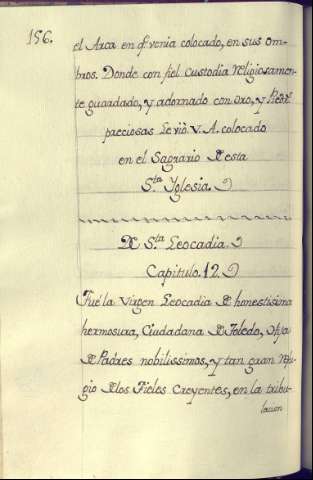 156.
el Arca en q̃ venia colocado, en sus om-
bros. Donde con fiel custodia religiosamen-
te guardado, y adornado con oro, y Piedr.ˢ
preciosas le vió V. A. colocado
en el Sagrario de esta
S.ᵗᵃ Yglesia.
De S.ᵗᵃ Leocadia.
Capitulo. 12.
Fué la Virgen Leocadia de honestisima
hermosura, Ciudadana de Toledo, Hija
de Padres nobilissimos, y tan gran refu-
gio de los Fieles Creyentes, en la tribu-
lacion